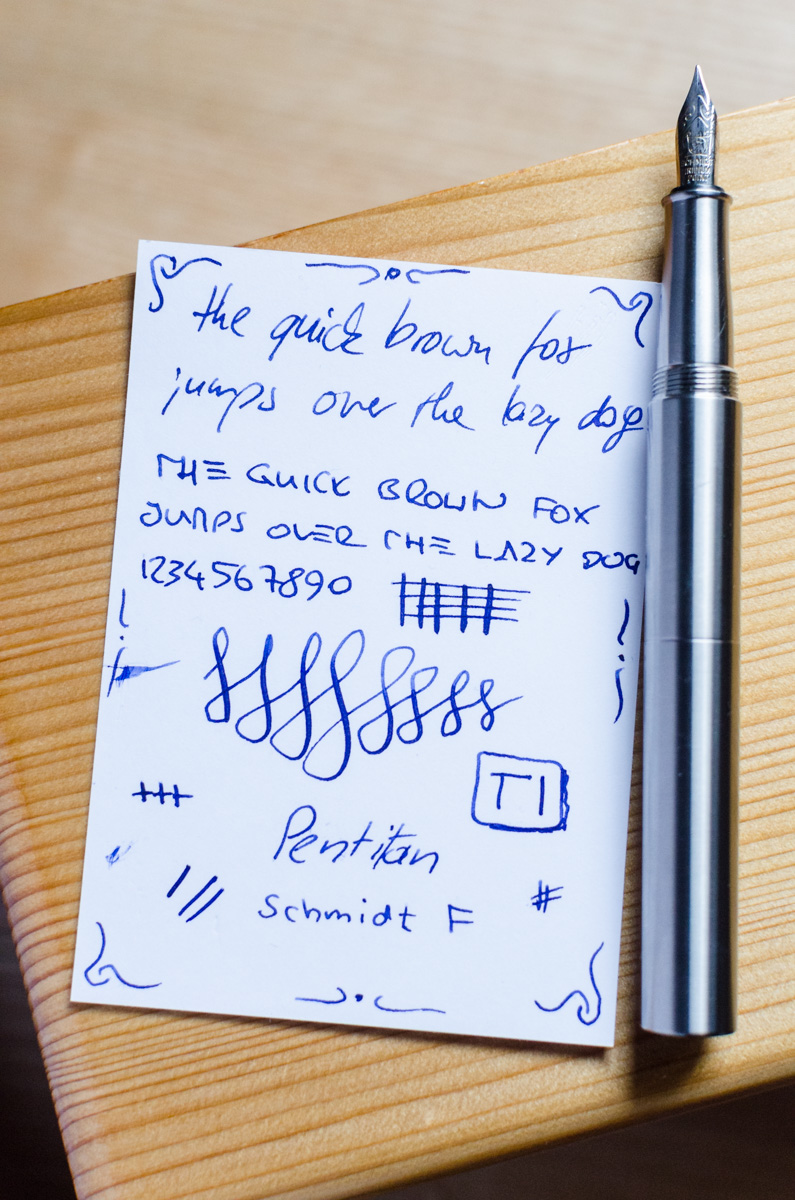 the quick brown fox
jumps over the lazy dog
THE QUICK BROWN FOX
JUMPS OVER THE LAZY DOG
1234567890
TI
Pentitan
Schmidt F
#